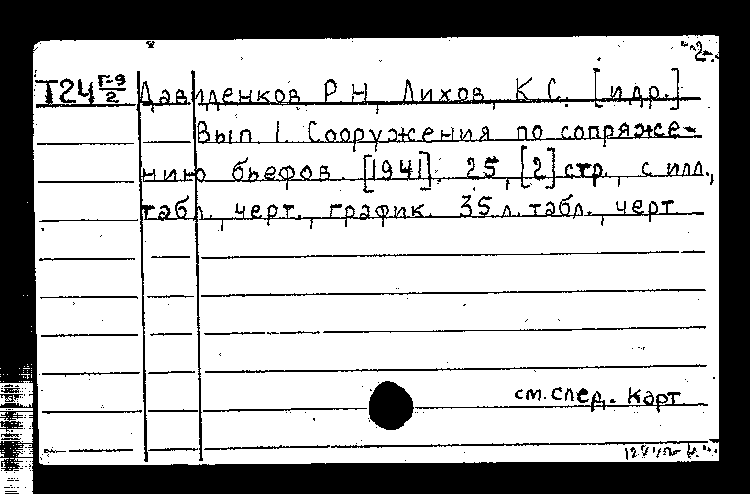 -2-
Т24 Г-9/2 Давиденков, Р.Н., Лихов, К.С. [и др.]
Вып. 1. Сооружения по сопряже-
нию бьефов. [1941]. 25, [2] стр., с илл.,
табл., черт., график. 35 л. табл., черт.
см. след. карт